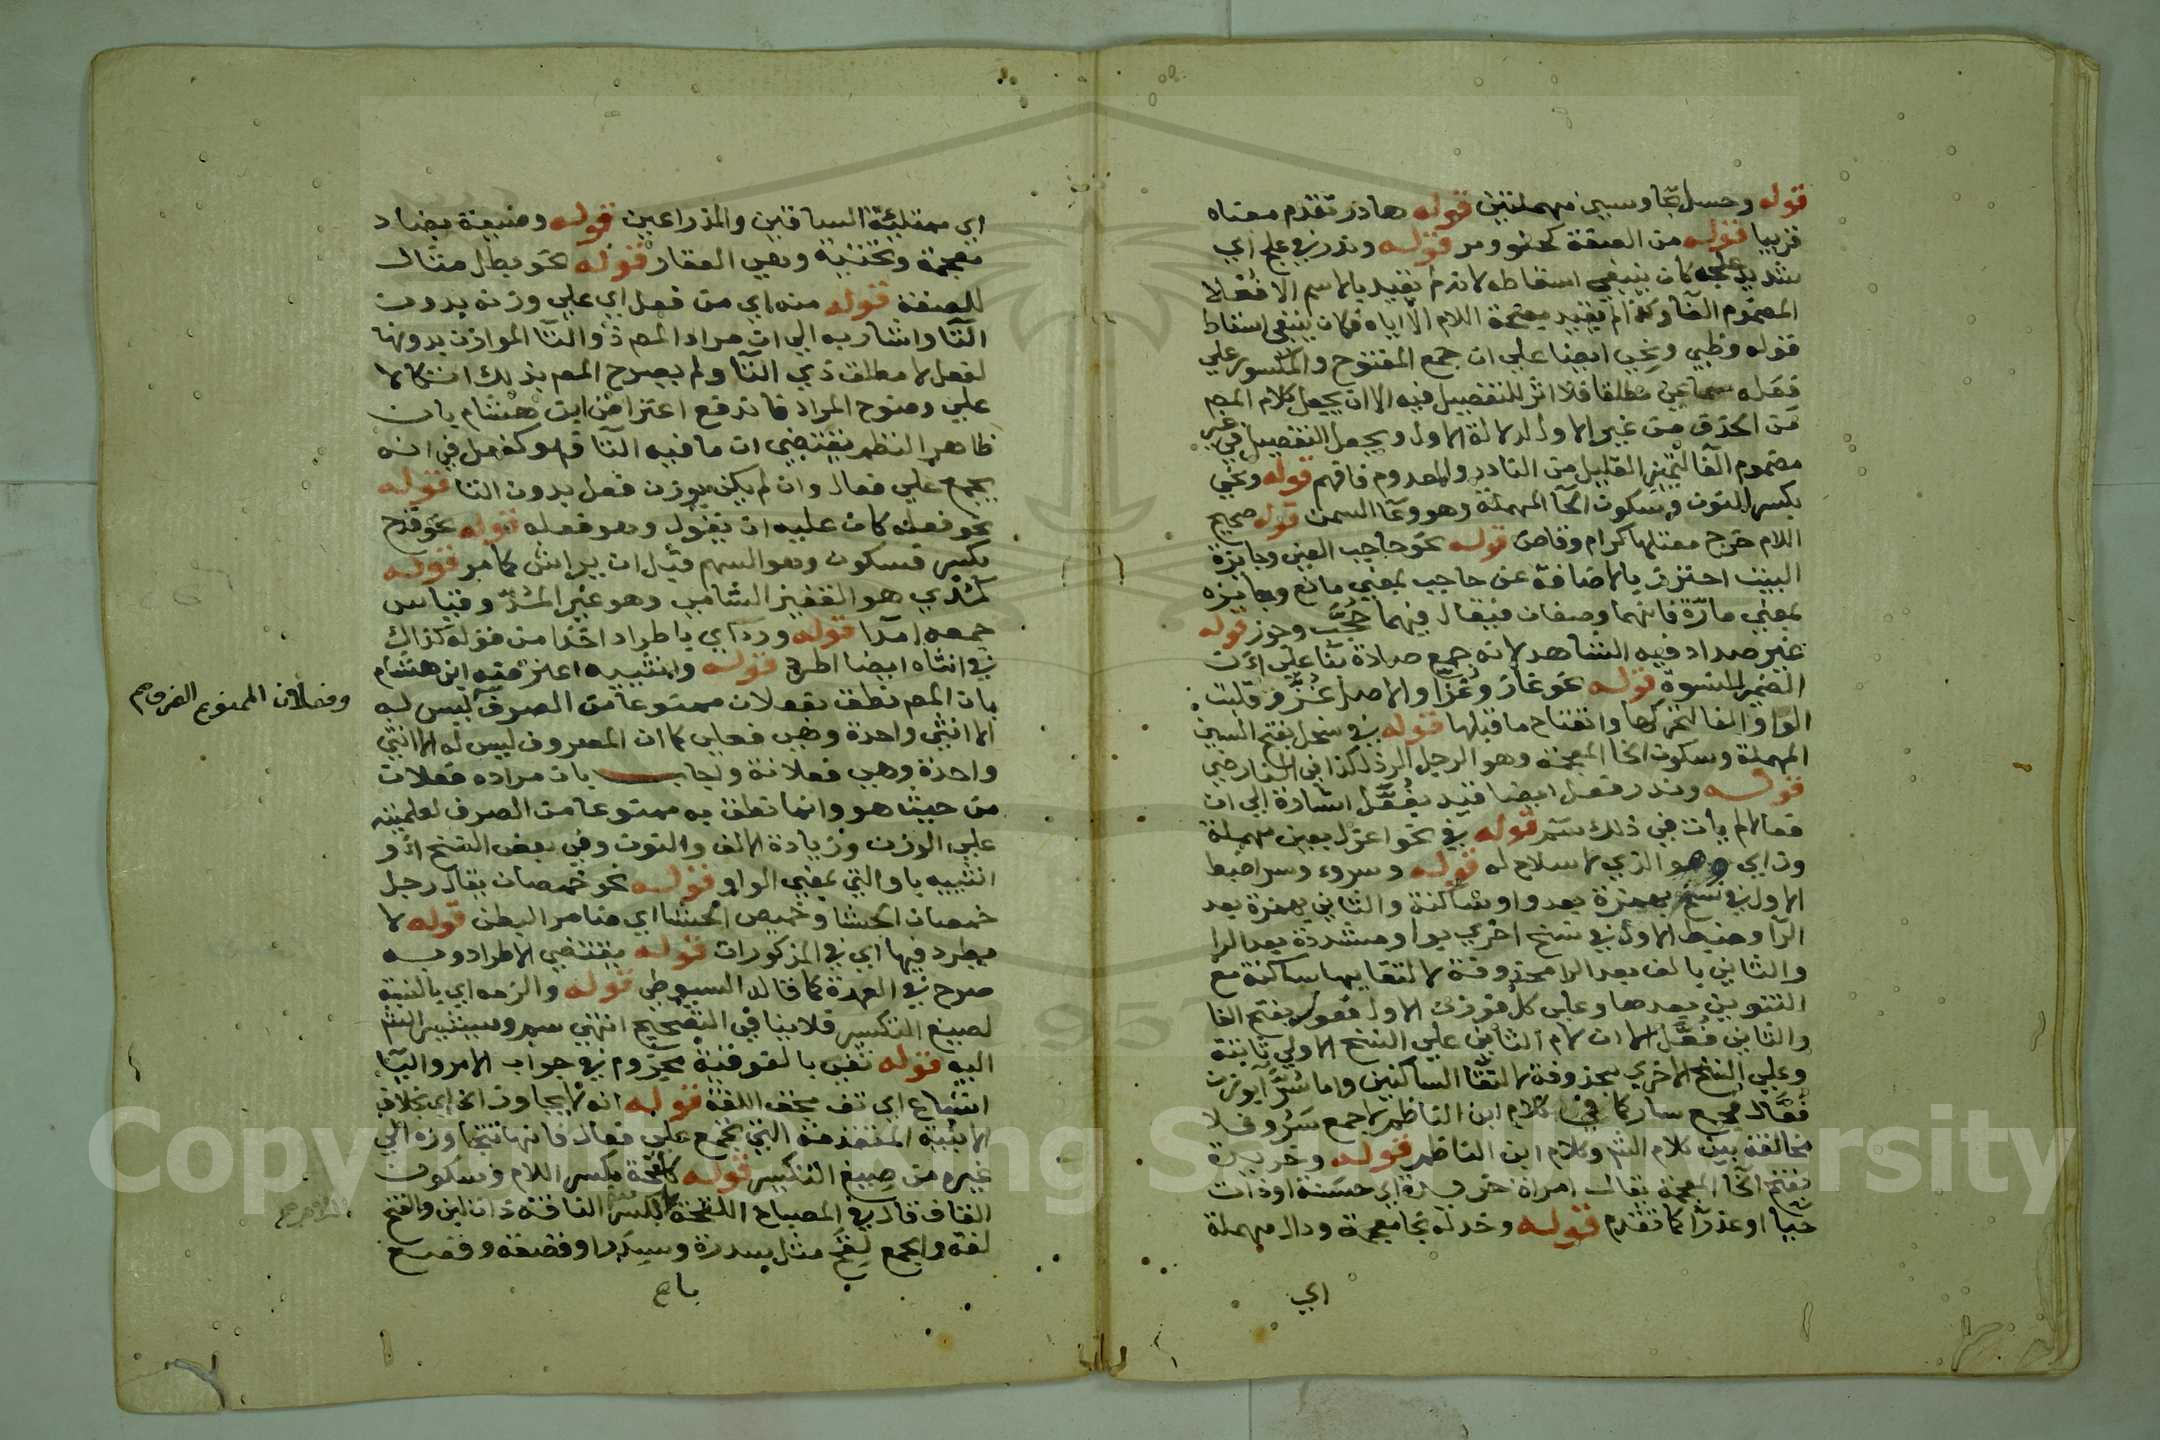 قوله وحسل بحا وسين مهملتين قوله هادر تقدم معناه
قريبا قوله من الصفة كحلو ومر قوله وندر في علج اي
شديد علجه كان ينبغي اسقاطه لانه لم يقيد بالاسم الا فعلا
المضموم الفا وكذا لم يقيد بصحة اللام الا اياه فكان ينبغي اسقاط
قوله وظبي ونحي ايضا علي ان جمع المفتوح والمكسور علي
فعلة سماعي مطلقا فلا اثر للتفصيل فيه الا ان يجعل كلام المص
من الحذف من غير الاول لدلالة الاول ويجعل التفصيل في غير
مضموم الفا لتمييز القليل من النادر والمعدوم فافهم قوله ونحي
بكسر النون وسكون الحا المهملة وهو وعا السمن قوله صحيح
اللام خرج معتلها كرام وقاض قوله نحو حاجب العين وجايزة
البيت احترز بالاضافة عن حاجب بمعني مانع وجايزه
بمعني مارة فانهما وصفان فيقال فيهما حجب وجوز قوله
غير صداد فيه الشاهد لانه جمع صادة بنا علي ان
الضمير للنسوة قوله نحو غاز وغزا والاصل غزو قلبت
الواو الفا لتحركها وانفتاح ما قبلها قوله في سخل بفتح السين
المهملة وسكون الخا المعجمة وهو الرجل الرذل كذا في الفارضي
قوله وندر فعل ايضا قيد بفعل اشارة الي ان
فعالا لم يات في ذلك سم قوله في نحو اعزل بعين مهملة
وزاي وهو الذي لا سلاح له قوله وسروء وسرا ضبط
الاول في نسخ بهمزة بعد واو ساكنة والثاني بهمزة بعد
الرا وضبط الاول في نسخ اخري بواو مشددة بعد الرا
والثاني بالف بعد الرا محذوفة لالتقايها ساكنة مع
التنوين بعدها وعلي كل فوزن الاول فعول بفتح الفا
والثاني فعل الا ان لام الثاني علي النسخ الاولي ثابتة
وعلي النسخ الاخري محذوفة لالتقا الساكنين واما سرا بوزن
فعال فجمع سار كما في كلام ابن الناظم لا جمع سرو فلا
مخالفة بين كلام الش وكلام ابن الناظم قوله وخريدة
بفتح الخا المعجمة يقال امراة خريدة اي حسنة او ذات
حيا او عذرا كما تقدم قوله وخدلة بخا معجمة ودال مهملة
اي
اي ممتلية الساقين والذراعين قوله وضيعة بضاد
معجمة وتحتية وهي العقار قوله نحو بطل مثال
للصفة قوله منه اي من فعل اي علي وزنه بدون
التا واشار به الي ان مراد المص ذو التا الموازن بدونها
لفعل لا مطلق ذي التا ولم يصرح المص بذلك اتكالا
علي وضوح المراد فاندفع اعتراض ابن هشام بان
ظاهر النظم يقتضي ان ما فيه التا فهو كفعل في انه
يجمع علي فعال وان لم يكن بوزن فعل بدون التا قوله
نحو فعلة كان عليه ان يقول وهو فعله قوله نحو قدح
بكسر فسكون وهو السهم قبل ان يراش كما مر قوله
كمدي هو القفيز الشامي وهو غير المد وقياس
جمعه امدا قوله ورد اي باطراد اخذا من قوله كذاك
في انثاه ايضا اطرد قوله وانثييه اعترضه ابن هشام
بان المص نطق بفعلان ممنوعا من الصرف ليس له
الا انثي واحدة وهي فعلي كما ان المصروف ليس له الا انثي
واحدة وهي فعلانة ويجاب بان مراده فعلان
من حيث هو وانما نطق به ممنوعا من الصرف لعلميته
علي الوزن وزيادة الالف والنون وفي بعض النسخ او
انثييه باو التي بمعني الواو قوله نحو خمصان يقال رجل
خمصان الحشا وخميص الحشا اي ضامر البطن قوله لا
يطرد فيها اي في المذكورات قوله يقتضي الاطراد وبه
صرح في العمدة كما قاله السيوطي قوله والزمه اي بالنسبة
لصيغ التكسير فلا ينافي التصحيح انتهي سم وسيشير الش
اليه قوله تفي بالفوقية مجزوم في جواب الامر واليا
اشباع اي تف بحق اللغة قوله انه لا يجاوز اي بخلاف
الابنية المتقدمة التي تجمع علي فعال فانها تتجاوزه الي
غيره من صيغ التكسير قوله كلقحة بكسر اللام وسكون
القاف قال في المصباح اللقحة بالكسر الناقة ذات لبن والفتح
لغة والجمع لقح مثل سدرة وسدر او قصعة وقصع
باح
وفعلان الممنوع الصرف صح